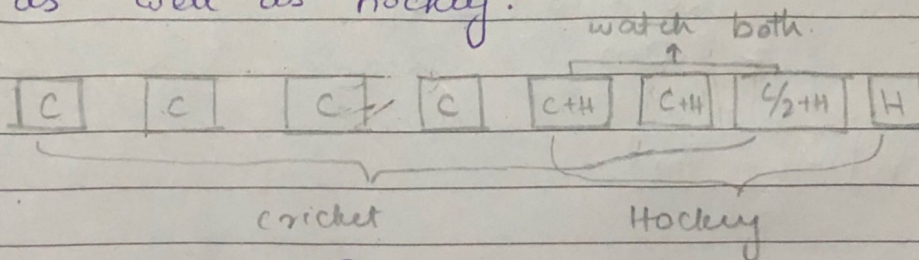 as well as hockey.
watch both.
C C C C C+H C+H C/2+H H
cricket Hockey